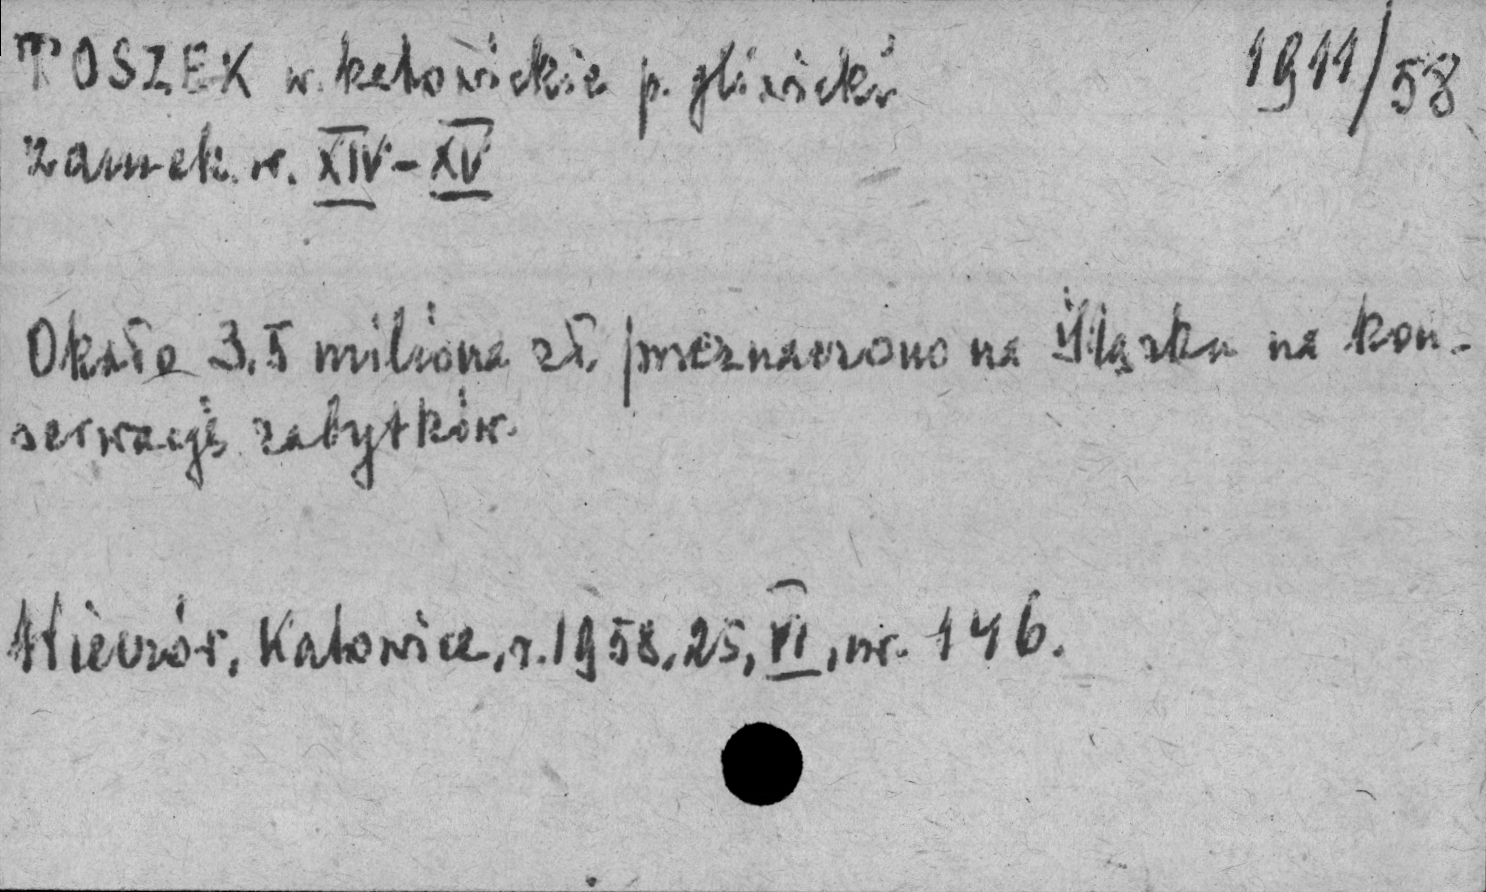 TOSZEK w. katowickie p. gliwicki 1911/58
zamek w. XIV-XV
Około 3.5 miliona zł. przeznaczono na Śląsku na kon-
serwację zabytków.
Wieczór, Katowice, r. 1958, 25, VI, nr. 146.